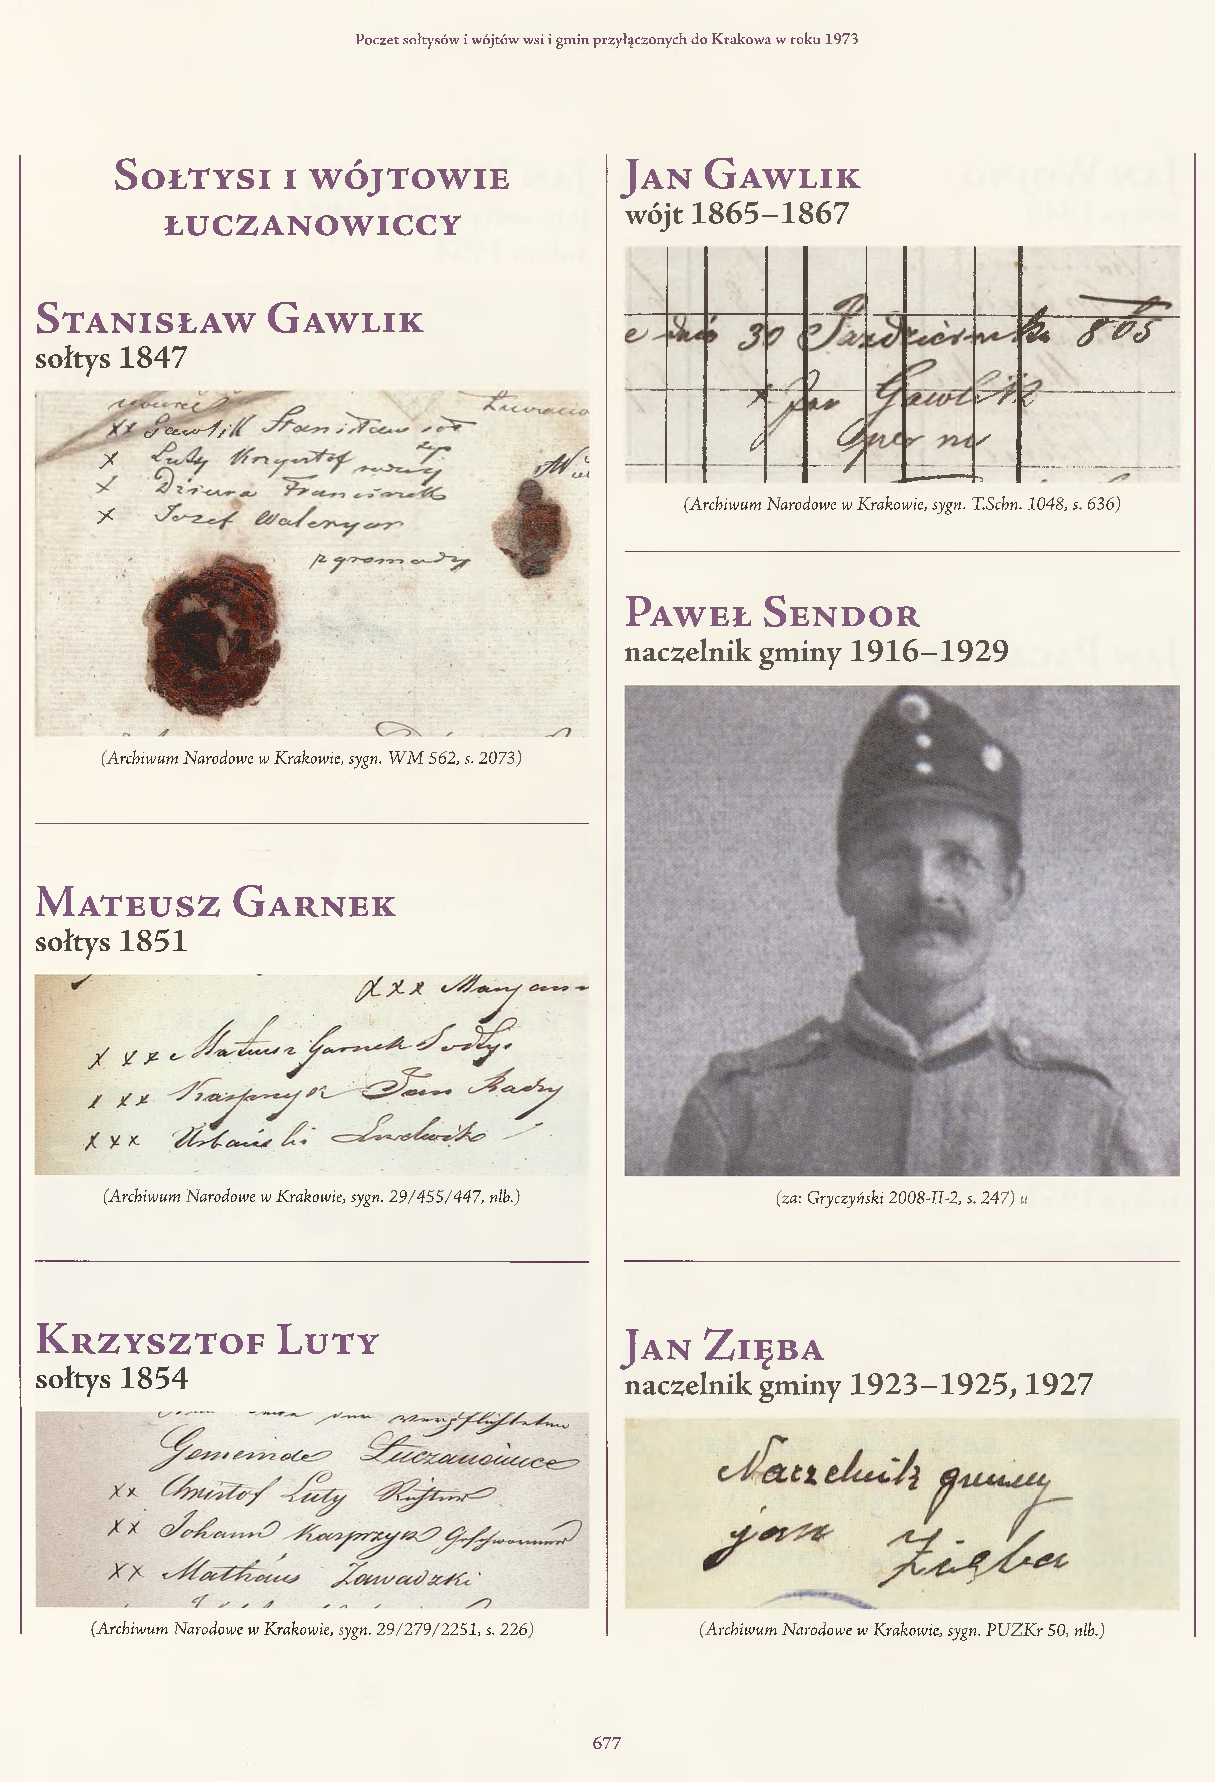 Poczet sołtysów i wójtów wsi i gmin przyłączonych do Krakowa w roku 1973
Sołtysi i wójtowie
łuczanowiccy
Stanisław Gawlik
sołtys 1847
xx Gawlik Stanisław
x Luty Krzysztof
x Dziura Franciszek
x Jozef Waleryan
z gromady
(Archiwum Narodowe w Krakowie, sygn. WM 562, s. 2073)
Mateusz Garnek
sołtys 1851
xxx Maryan
x x x Mateusz Garnek Sołtys
x xx Kasprzyk Jan Radny
x x x Urbański Ludwik
(Archiwum Narodowe w Krakowie, sygn. 29/455/447, nlb.)
Krzysztof Luty
sołtys 1854
der verpflichteten
Gemeinde Łuczanowice
xx Christof Luty Richter
xx Johann Kasprzyk Geschworener
xx Mathäus Zawadzki
(Archiwum Narodowe w Krakowie, sygn. 29/279/2251, s. 226)
Jan Gawlik
wójt 1865–1867
e dnia 30 Października 865
x Jan Gawlik
(Archiwum Narodowe w Krakowie, sygn. T.Schn. 1048, s. 636)
Paweł Sendor
naczelnik gminy 1916–1929
(za: Gryczyński 2008-II-2, s. 247) u
Jan Zięba
naczelnik gminy 1923–1925, 1927
Naczelnik gminy
jan Zięba
(Archiwum Narodowe w Krakowie, sygn. PUZKr 50, nlb.)
677